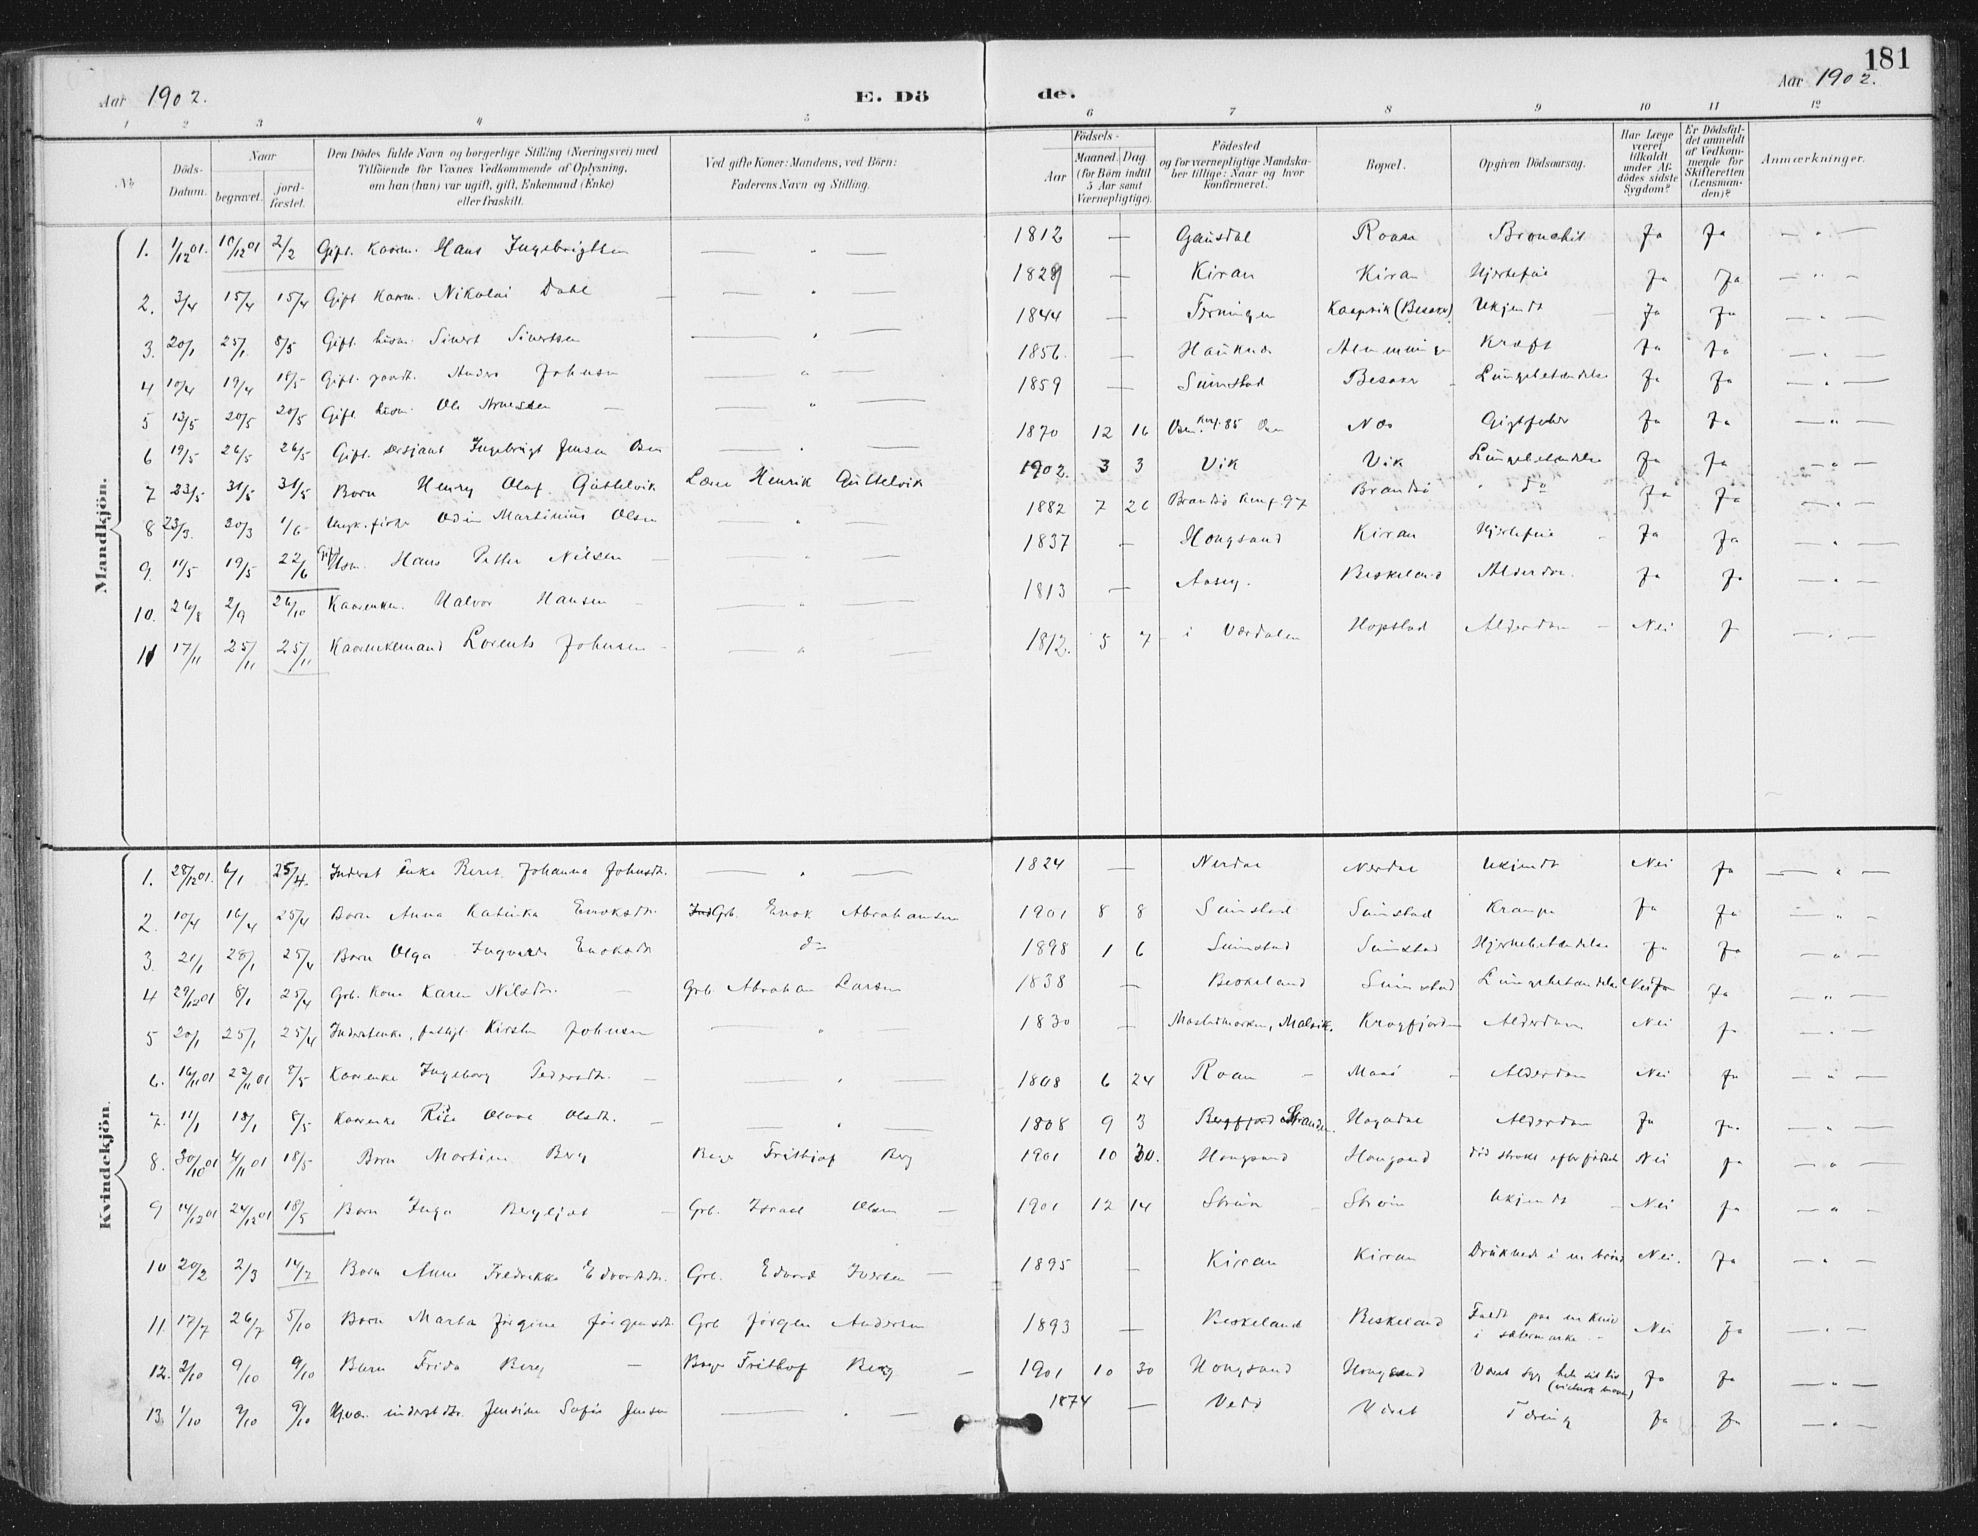 181
Aar 1902. E. Dö de. Aar 1902.
1 2 3 4 5 6 7 8 9 10 11 12
No. Döds-Datum. Naar begravet. jord-fæstet. Den Dödes fulde Navn og borgerlige Stilling (Næringsvei) med Tilföiende for Voxnes Vedkommende af Oplysning, om han (hun) var ugift, gift, Enkemand (Enke) eller fraskilt. Ved gifte Koner: Mandens, ved Börn: Faderens Navn og Stilling. Födsels- Aar Maaned. Dag (for Börn indtil 5 Aar samt Værnepligtige). Födested og for værnepligtige Mandska-ber tillige: Naar og hvor konfirmeret. Bopæl. Opgiven Dödsaarsag. Har Læge været tilkaldt under Af-dödes sidste Sygdom? Er Dödsfal-det anmeldt af Vedkom-mende for Skifteretten (Lensman-den)? Anmærkninger.
Mandkjön.
1. 1/12 01. 10/12 01 2/2 Gift. Kaarm. Hans Ingebrigtsen — " — 1812 — Gausdal Roan Bronchit Ja Ja — " —
2. 3/4 15/4 15/4 Gift Kaarm. Nikolai Dahl — " — 1829 — Kiran Kiran Hjertefeil Ja Ja — " —
3. 20/1 25/1 8/5 Gift. husm. Sivert Sivertsen — " — 1844 — Terningen (Besaker) Ukjendt Ja Ja — " —
4 10/4 19/4 18/5 Gift. gaardb. Anders Johnsen — " — 1856. — Kræft Ja Ja — " —
5 13/5 20/5 20/5 Gift husm. Ole Arnesen — " — 1859 — Sumstad Besaker Lungebetændelse Ja Ja — " —
6 19/5 26/5 26/5 Gift. sersjant Ingebrigt Jensen Osen " — 1870 12 16 Osen. Konf. 85 Osen Næs Gigtfeber Ja Ja — " —
7 23/5 31/5 31/5 Barn Henry Olaf Guttelvik Lærer Henrik Guttelvik 1902. 3 3 Vik Vik Lungebetændelse Ja Ja — " —
8 23/3. 20/3 1/6 Ungk. fisker Odin Martinius Olsen " — 1882 7 26 Brandsö Konf. 97 Brandsö " do Ja Ja — " —
9. 11/5 19/5 22/6 Gift Husm. Hans Petter Nilsen — " — 1837 — Hongsand Kiran Hjertefeil Ja Ja — " —
10. 26/8 2/9 26/10 Kaarenkem. Halvor Hansen — " — 1813 — Aaseg. Beskeland Alderdom. Ja Ja — " —
11 17/11 25/11 25/11 Kaarenkemand Lorents Johnsen — " — 1812. 5 7 i Værdalen Hopstad Alderdom Nei J — " —
Kvindekjön.
1. 28/12 01. 6/1 25/4. Inderst enke Beret Johanna Johnsdt. — " — 1824 — Nerdal Nerdal Ukjendt Nei Ja — " —
2. 10/4 16/4 25/4 Barn Anna Katinka Enoksdt. Ind Grb. Enok Abrahamsen 1901 8 8 Sumstad Sumstad Krampe Ja Ja — " —
3. 21/1 28/1 25/4 Barn Olga Ingvarda Enoksdt. do 1898 1 6 Sumstad Sumstad Hjernebetændelse Ja Ja — " —
4 29/12 01 8/1 25/4 Grb. Kone Karen Nilsdtr. — Grb. Abraham Larsen 1838 — Beskeland Sumstad Lungebetændelse Nei Ja Ja — " —
5 20/1 25/1 25/4 Inderstenke, fattigl. Kirsten Johnsen — " 1830 — Mostadmarken, Malvik. Krogfjorden Alderdom Nei Ja — " —
6. 16/11 01 22/11 01 8/5 Kaarenke Ingeborg Pedersdtr. — " — 1808 6 24 Roan — — Alderdom Nei Ja — " —
7. 11/1 18/1 8/5 Kaarenke Olava Olsdtr. — " — 1808 9 3 Bergfjord Stranden. Hagadal Alderdom Ja Ja. — " —
8. 30/10 01 4/11 01 18/5 Barn Martine Berg Frithjof Berg 1901 10 30. Hongsand Hongsand död straks efter födsel Nei Ja — " —
9 14/12 01 24/12 01 18/5 Barn Inga Bergljot — Grb. Israel Olsen — 1901 12 14 Ström — Ström Ukjendt Nei Ja — " —
10 20/2 2/3 14/7 Barn Anne Fredrikke Edvardsdt. Grb. Edvard Iversen — 1895 — Kirran Kirran Druknede i en brönd Nei. Ja — " —
11. 17/7 26/7 5/10 Barn Marta Jörgine Jörgensdt. Grb Jörgen Andersen 1893 — Beskeland Beskeland Faldt paa en kniv i sætermarka. Nei Ja — " —
12. 2/10 9/10 9/10 Barn Frida Berg — Frithof Berg — 1901 10 30 Hongsand Hongsand Været syg hele sit liv Ja Ja — " —
13. 1/10 9/10 9/10 inderstdtr. Jensine Sofie Jensen — " — 1874 — Tæring Ja Ja — " —